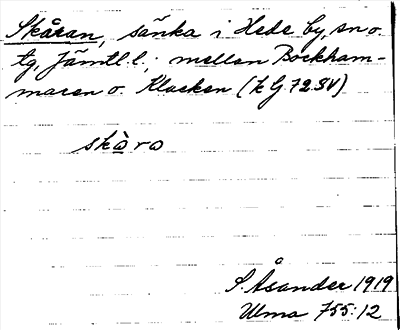 Skåran, sänka i Hede by, sn o.
tg, Jämtl. l.; mellan Bockham-
maren o. Klacken (k G. 72 SV)
skåra
S. Åsander 1919
Ulma 755:12